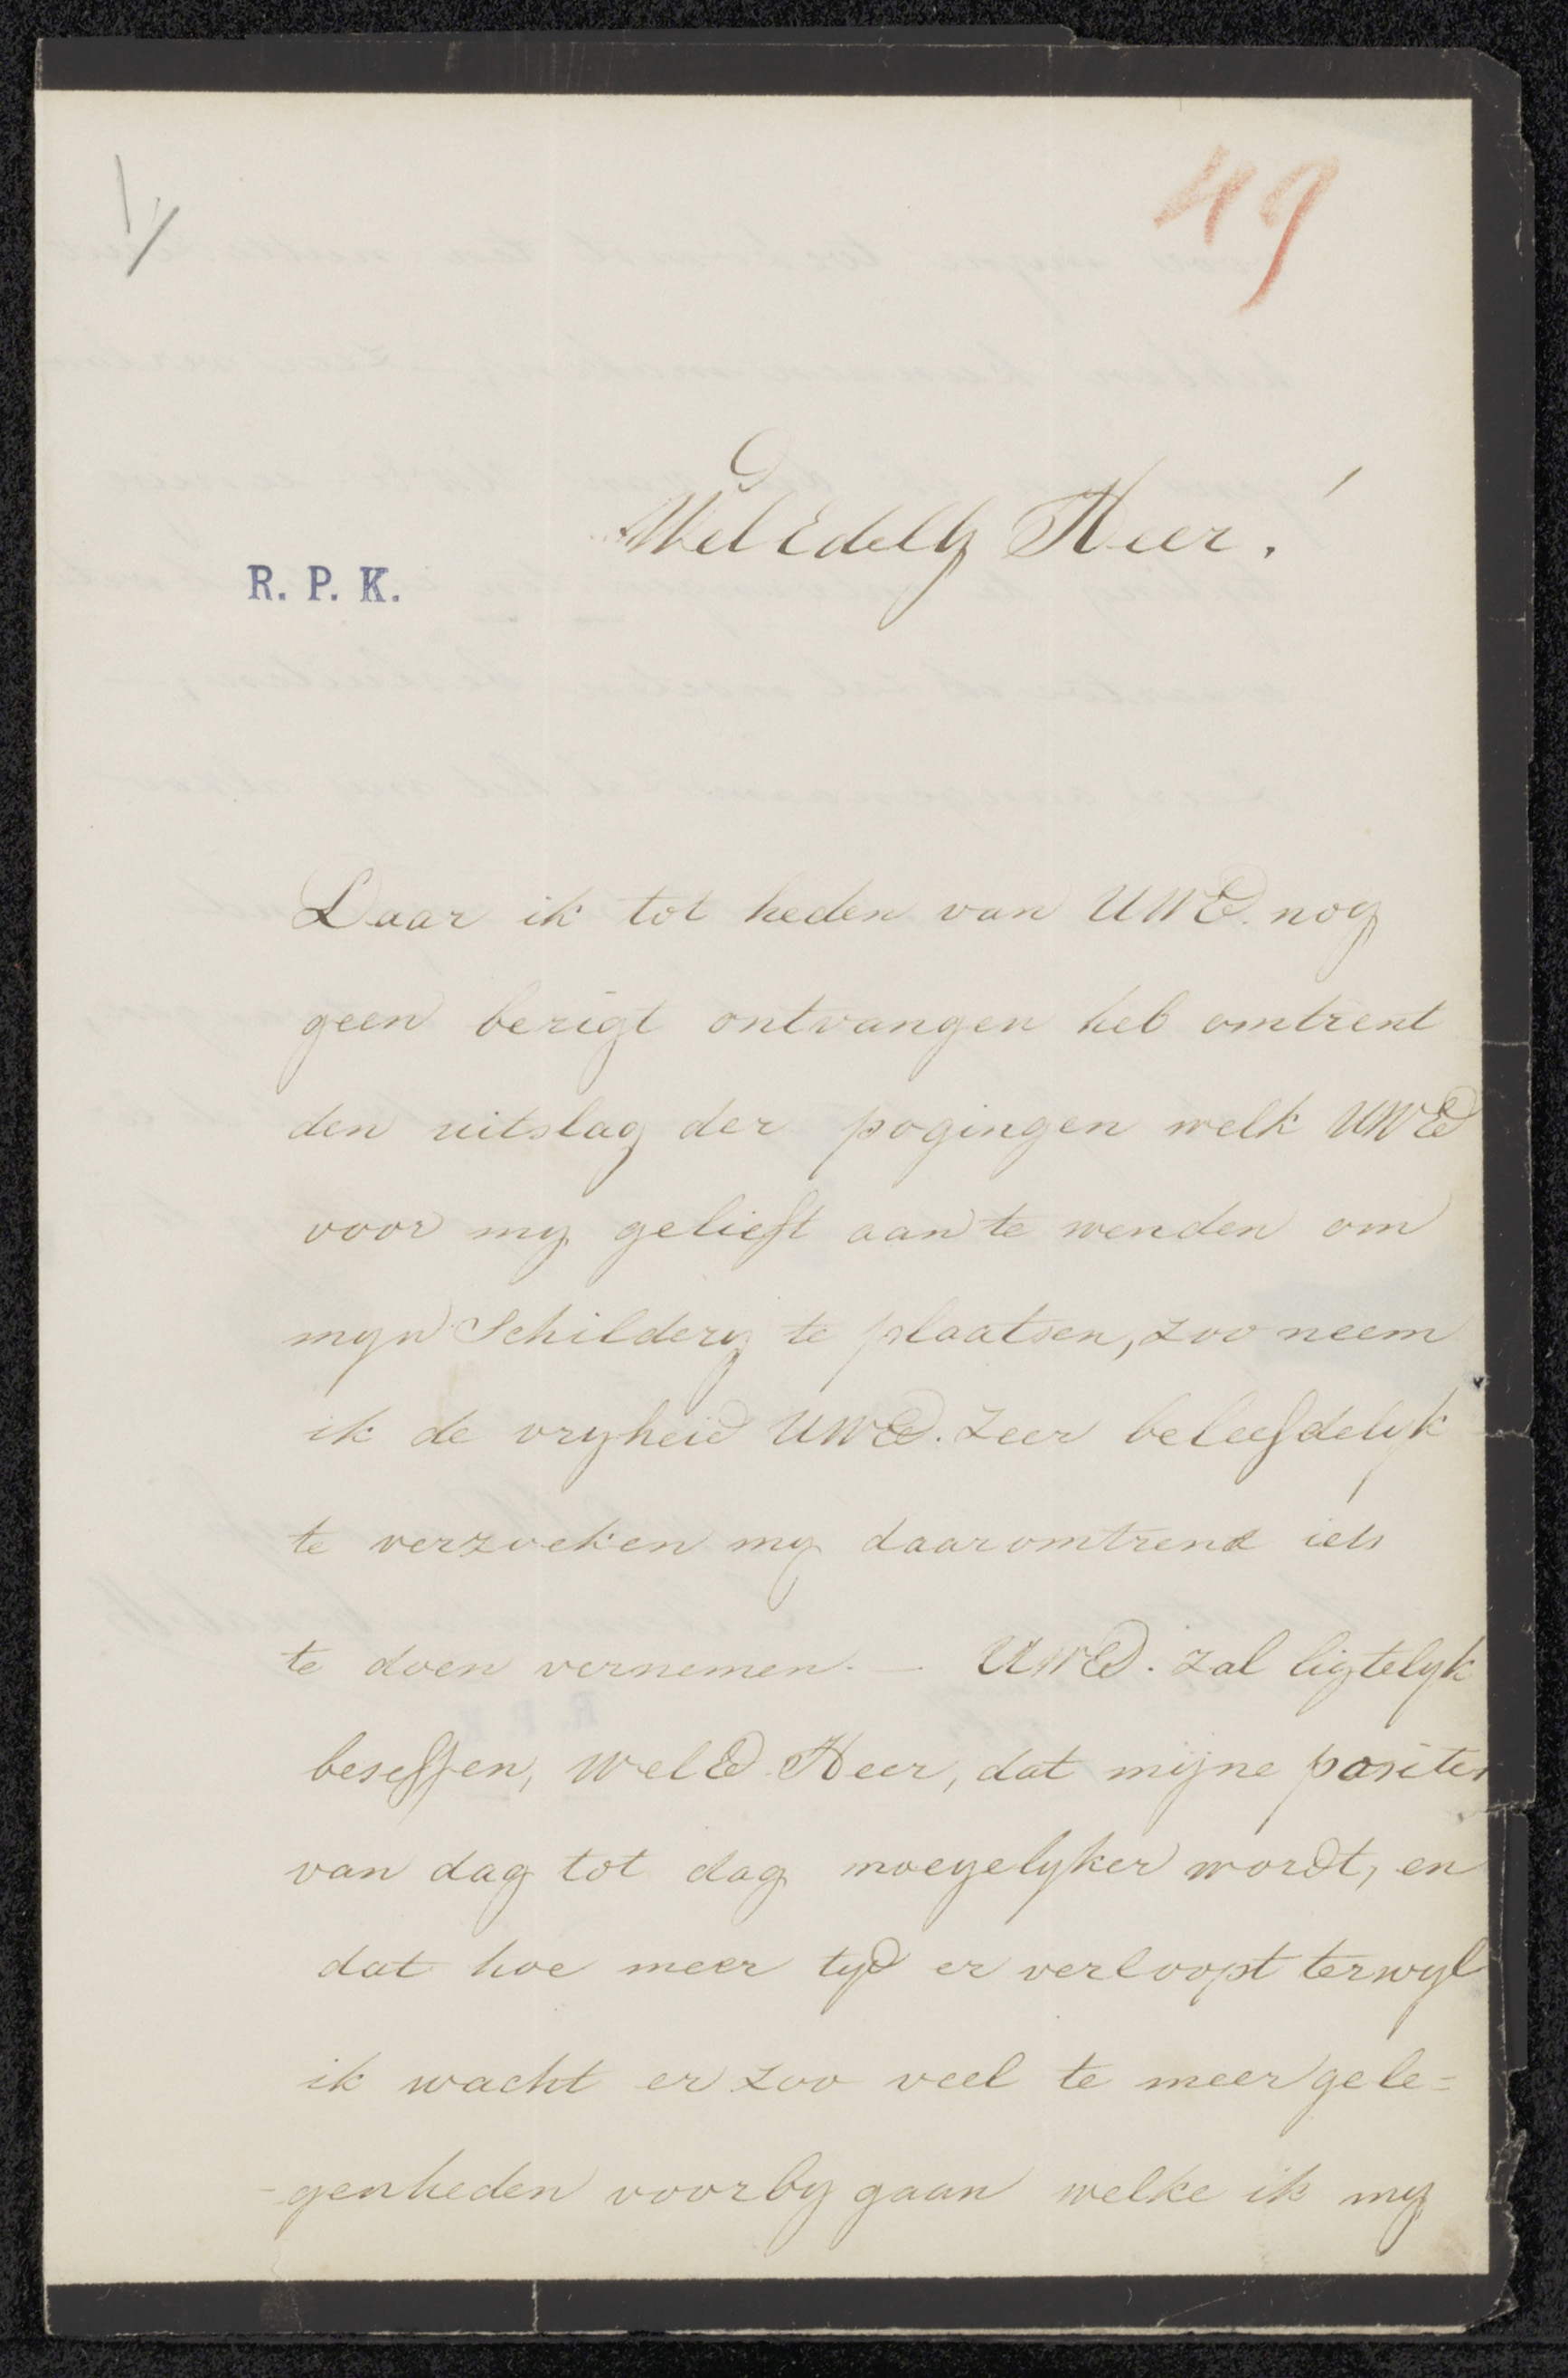 49
Wel Edelh Heer!
R. P. K.
Daar ik tot heden van UWEd. nog
geen berigt ontvangen heb omtrent
den uitslag der pogingen welk UWEd
voor my gelieft aan te wenden om
myn Schildery te plaatsen, zoo neem
ik de vryheid UWEd. zeer beleefdelyk
te verzoeken my daaromtrent iets
te doen vernemen. — UWEd. zal ligtelyk
beseffen, WelEd Heer, dat mijne positie
van dag tot dag moeyelyker wordt, en
dat hoe meer tyd er verloopt terwyl
ik wacht er zoo veel te meer gele=
-genheden voorby gaan welke ik my